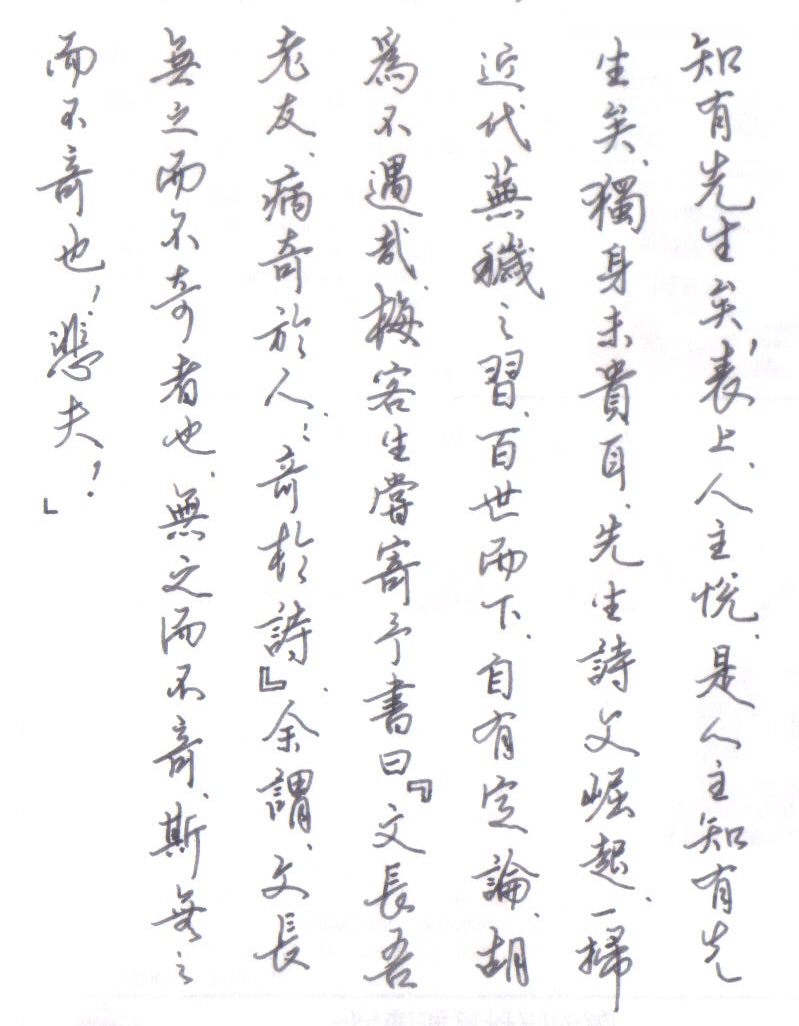 知有先生矣，表上、人主悅、是人主知有先
生矣、獨身未貴耳、先生詩文崛起、一掃
近代蕪穢之習、百世而下、自有定論、胡
為不遇哉、梅客生嘗寄予書曰『文長吾
老友、病奇於人、：奇於詩』、余謂、文長
無之而不奇者也、無之而不奇、斯無之
而不奇也，！悲夫！」